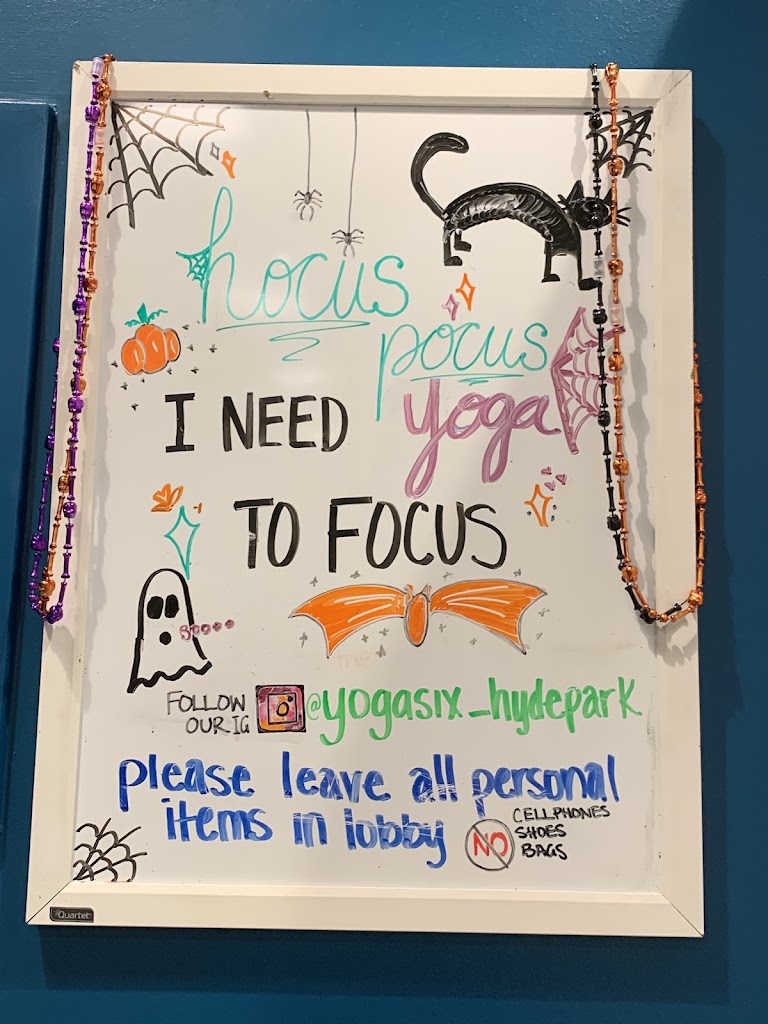 hocus
pocus
I NEED yoga
TO FOCUS
Boooo
FOLLOW
OUR IG @yogasix_hydepark
please leave all personal
items in lobby
NO
CELLPHONES
SHOES
BAGS
Quartet